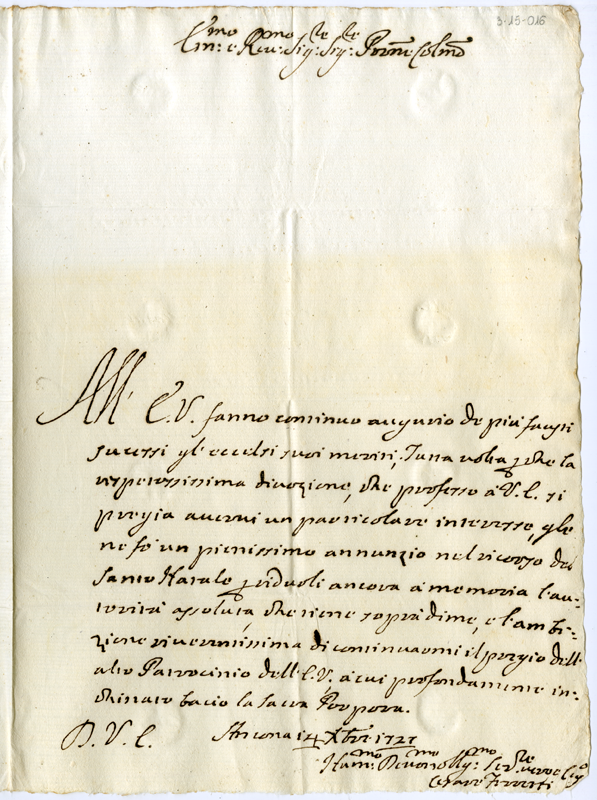 3-15-016
Em:mo e Rev:mo Sig:re Sig:re Prōne Colmō
All' E.V. fanno continuo augurio de più fausti
sucessi gl'eccelsi suoi meriti, Tuna volta che la
rispetosissima divozione, che professo à V.E. si
pregia avervi un particolare interesse, gle
ne fò un pienissimo annunzio nel ricorso del
Santo Natale ridurli ancora à memoria l'au-
torità assoluta, che tiene soprà di me, e l'ambi-
zione riverentissima di continuarmi il pregio dell'
alto Patrocinio dell'E.V., à cui profondamente in-
chinato bacio la sacra Porpora.
D. V. E. Ancona 14 Xbre 1727
Hum:mo Devmo Obligmo Servre vero e
Cesare Ferretti